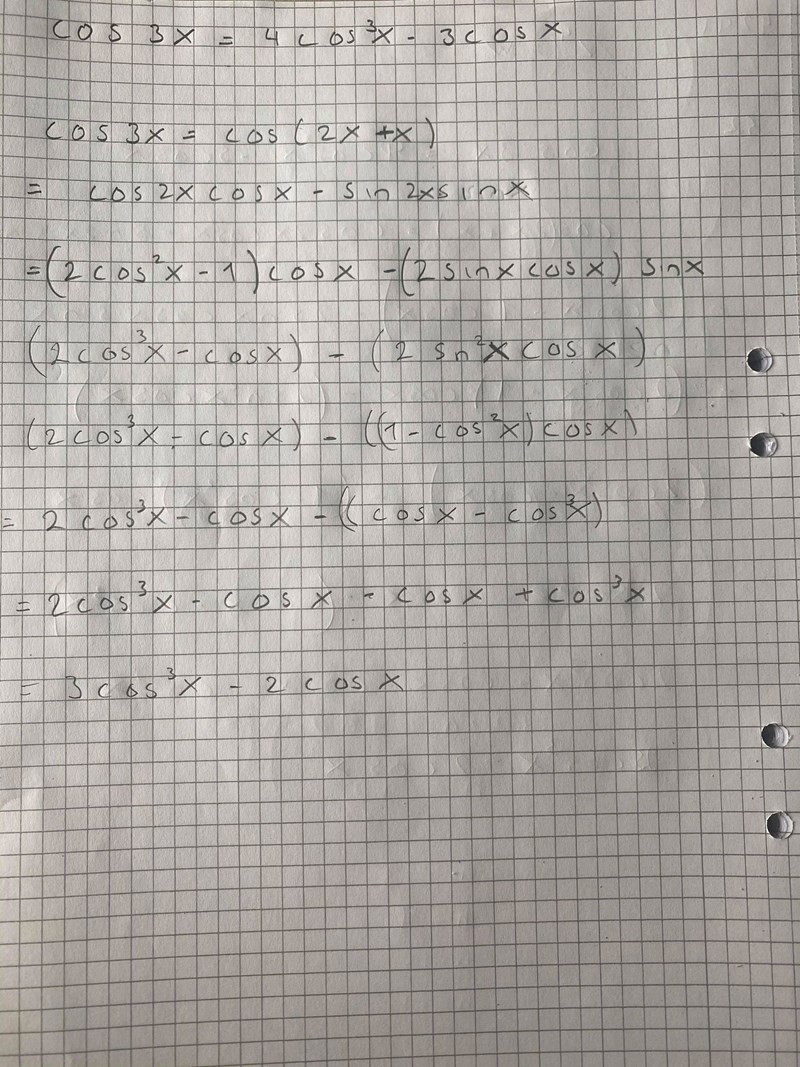 cos 3x = 4cos³x - 3cosx
cos3x = cos(2x+x)
= cos2xcosx - sin2xsinx
=(2cos²x - 1)cosx -(2sinxcosx) sinx
(2cos³x - cosx) - (2 sn²xcosx)
(2cos³x - cosx) - ((1 - cos²x)cosx)
= 2cos³x - cosx - ((cosx - cos³x)
= 2cos³x - cosx - cosx + cos³x
= 3cos³x - 2cosx